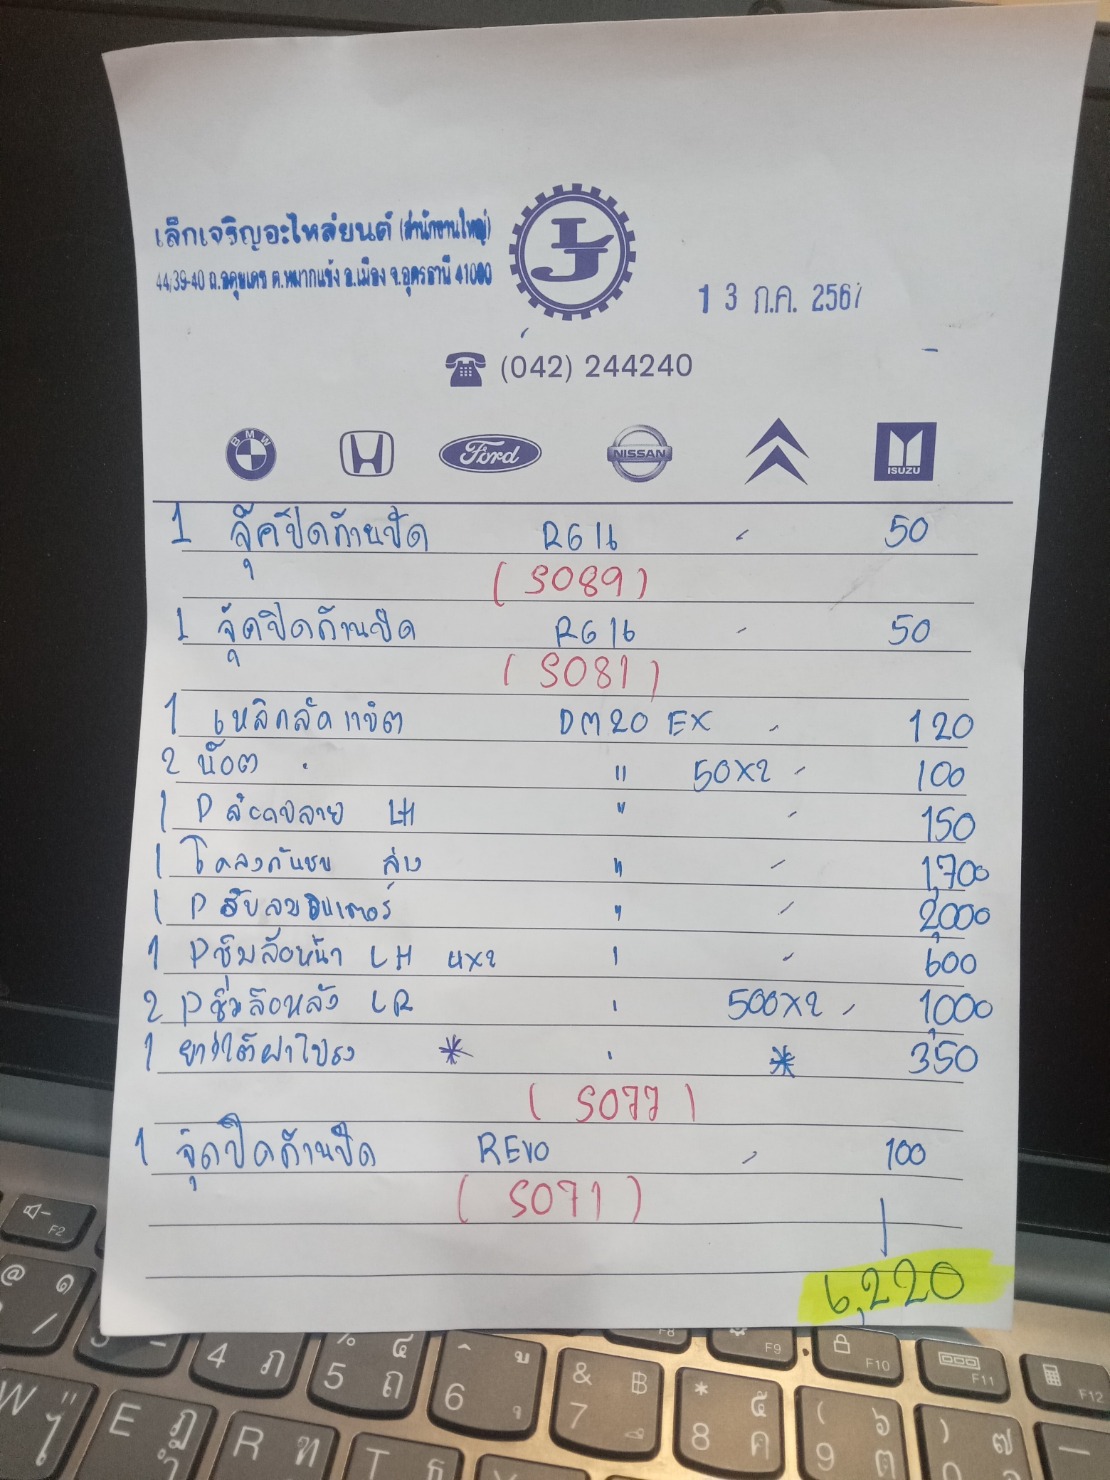 เล็กเจริญอะไหล่ยนต์ (สำนักงานใหญ่)
44/39-40 ถ.อดุลยเดช ต.หมากแข้ง อ.เมือง จ.อุดรธานี 41000
LJ
13 ก.ค. 2567
(042) 244240
BMW Ford NISSAN ISUZU
1 จุ๊คปิดก้านปัด RG16 - 50
(S089)
1 จุ๊คปิดก้านปัด RG16 - 50
(S081)
1 เหล็กลัด DM20 EX - 120
2 น๊อต " 50X2 - 100
1 P LH " - 150
1 โครงกันชน ล่าง " - 1,700
1 P " - 2,000
1 P ซุ้มล้อหน้า LH 4X2 ' - 600
2 P ซุ้มล้อหลัง LR ' 500X2 - 1,000
1 ยางใต้ฝาโปรง * ' * 350
(S077)
1 จุ๊คปิดก้านปัด REVO - 100
(S071)
6,220
F2
@ ๑
/
3 -
4 ภ
% ๔
5 ถ
^ ู
6 ุ
& ฿
7 ึ
* ๕
8 ค
( ๖
9 ต
) ๗
F8
F9
F10
F11
F12
W
E ฎ ำ
R ฑ
T ธ